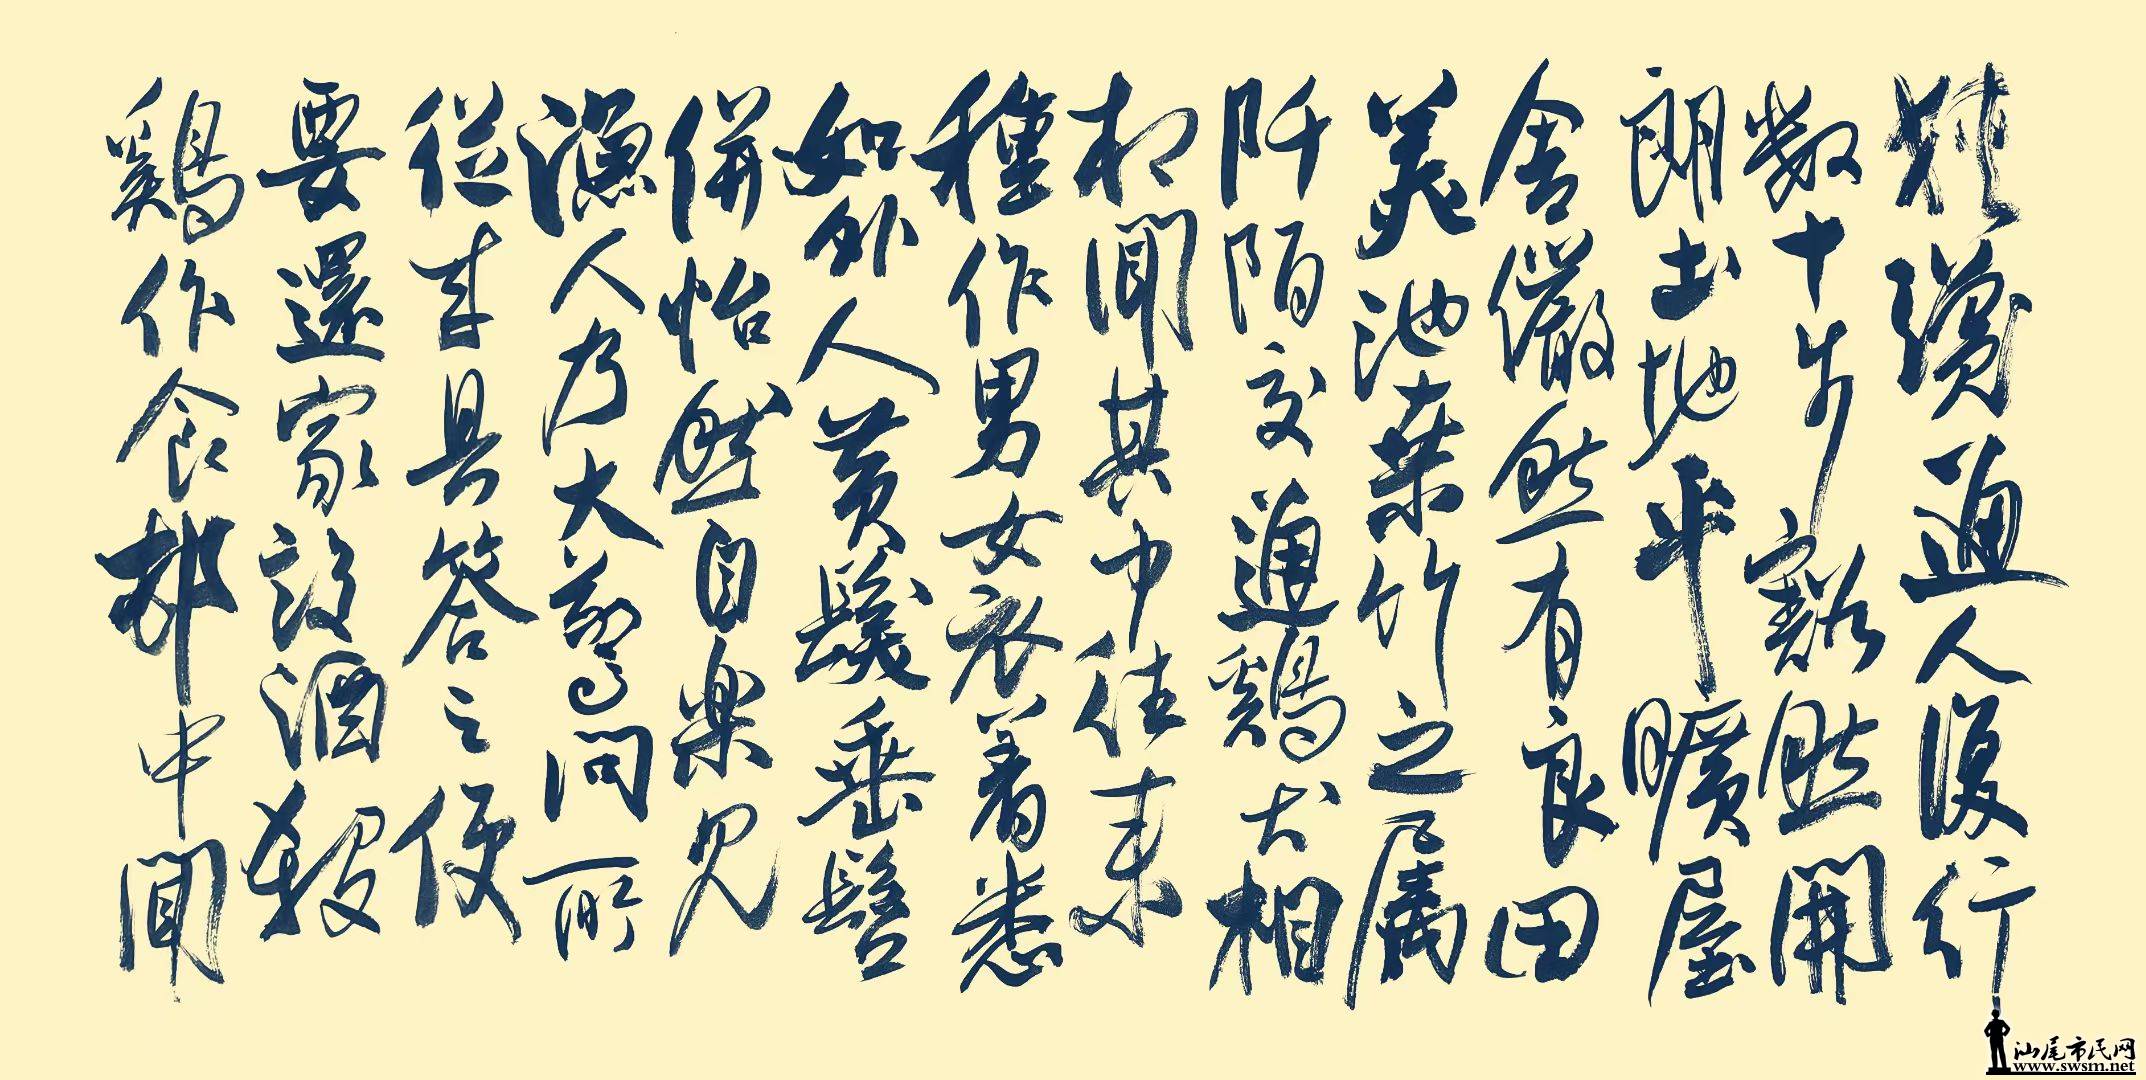 狹纔通人復行
數十步豁然開
朗土地平曠屋
舍儼然有良田
美池桑竹之属
阡陌交通鷄犬相
相聞其中往来
種作男女衣着悉
如外人黄髮垂髫
併怡然自楽見
漁人乃大驚問所
從来具答之便
要還家設酒殺
鷄作食邨中聞
汕尾市民网
www.swsm.net